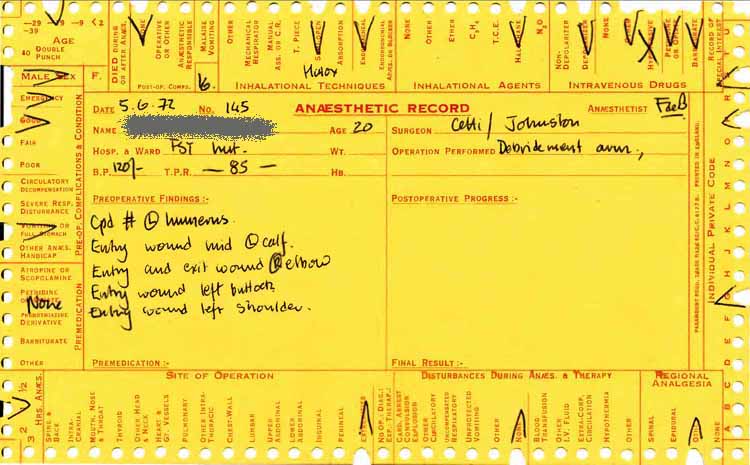 29 9 <2
39
40
AGE
DOUBLE PUNCH
MALE SEX F.
DIED DURING OR AFTER ANÆS.
NONE
OPERATIVE OR OTHER
ANÆSTHETIC RESPONSIBLE
MALAISE
VOMITING
OTHER
POST-OP. COMPS.
16.
MECHANICAL RESPIRATOR
MANUAL ASS. OR C.R.
T. PIECE
ABSORPTION
Halox
INHALATIONAL TECHNIQUES
NONE
OTHER
ETHER
C₂H₄
T.C.E.
N₂O
INHALATIONAL AGENTS
NONE
NON-DEPOLARIZER
DEPOLARIZER
OTHER
INTRAVENOUS DRUGS
RECORD OF SPECIAL INTEREST
EMERGENCY
GOOD
FAIR
POOR
CIRCULATORY DECOMPENSATION
SEVERE RESP. DISTURBANCE
VOMITING OR FULL STOMACH
OTHER ANÆS. HANDICAP
PRE-OP. COMPLICATIONS & CONDITION
ATROPINE OR SCOPOLAMINE
None
PHENOTHIAZINE DERIVATIVE
BARBITURATE
OTHER
PREMEDICATION
DATE 5.6.72 No. 145 ANÆSTHETIC RECORD ANÆSTHETIST
NAME AGE 20 SURGEON Johnston
HOSP. & WARD FST hut. WT. OPERATION PERFORMED Debridement arm,
B.P. 120/- T.P.R. — 85 — HB.
PREOPERATIVE FINDINGS :- POSTOPERATIVE PROGRESS :-
Cpd # Ⓛ humerus.
Entry wound mid Ⓛ calf.
Entry and exit wound Ⓡ elbow
Entry wound left buttock
Entry wound left shoulder.
PREMEDICATION :- FINAL RESULT :-
PRINTED IN ENGLAND.
INDIVIDUAL PRIVATE CODE
A B C D E F G H J K L M N O
SITE OF OPERATION
DISTURBANCES DURING ANÆS. & THERAPY
REGIONAL ANALGESIA
½
2
3
HRS. ANÆS.
SPINE & BACK
INTRA-CRANIAL
MOUTH, NOSE & THROAT
THYROID
OTHER HEAD & NECK
HEART & GT. VESSELS
PULMONARY
OTHER INTRA-THORACIC
CHEST-WALL
LUMBAR
UPPER ABDOMINAL
LOWER ABDOMINAL
INGUINAL
PERINEAL
EXTREMITIES
CARD. ARREST
CONVULSION
EXPLOSION
OTHER CIRCULATORY
UNCOMPENSATED RESPIRATORY
UNPROTECTED VOMITING
OTHER
NONE
BLOOD TRANSFUSION
OTHER I.V. FLUID
EXTRA-CORP. CIRCULATION
HYPOTHERMIA
OTHER
SPINAL
EPIDURAL
OTHER
NONE